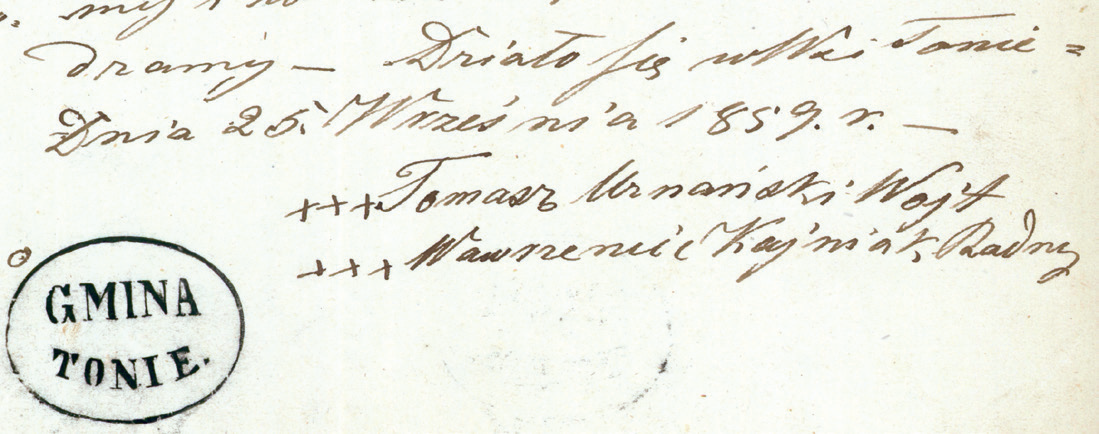 dramy — Działo się w Wsi Tonie =
Dnia 25. Wrześnía 1859. r. —
+++ Tomasz Urnański Wojt
+++ Wawrzeniec Kajniak Radny
GMINA
TONIE.